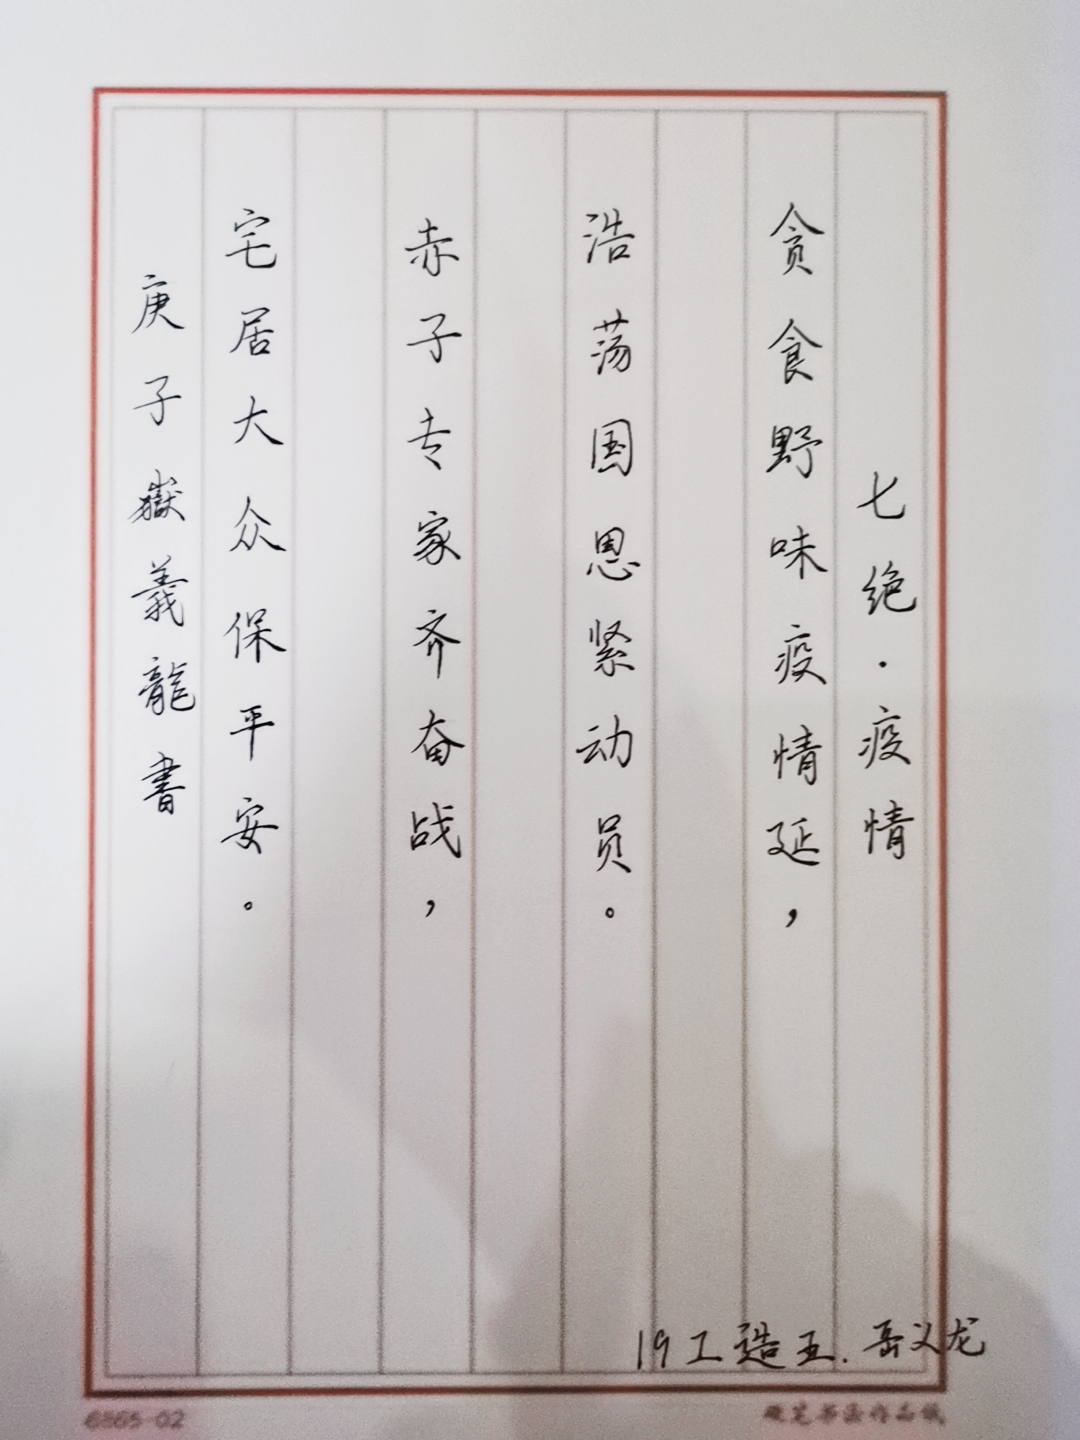 七绝·疫情
贪食野味疫情延，
浩荡国恩紧动员。
赤子专家齐奋战，
宅居大众保平安。
庚子嶽義龍書
19工造五.岳义龙
6565-02
硬笔书法作品纸